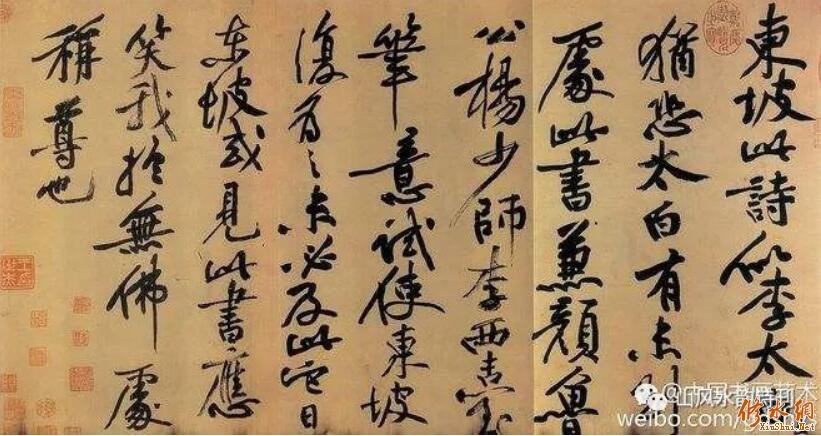 東坡此詩似李太
猶恐太白有未到
處此書兼顏魯
公楊少師李西臺
筆意試使東坡
復為之未必及此它日
東坡或見此書應
笑我於無佛處
稱尊也
weibo.com/u/
修水網